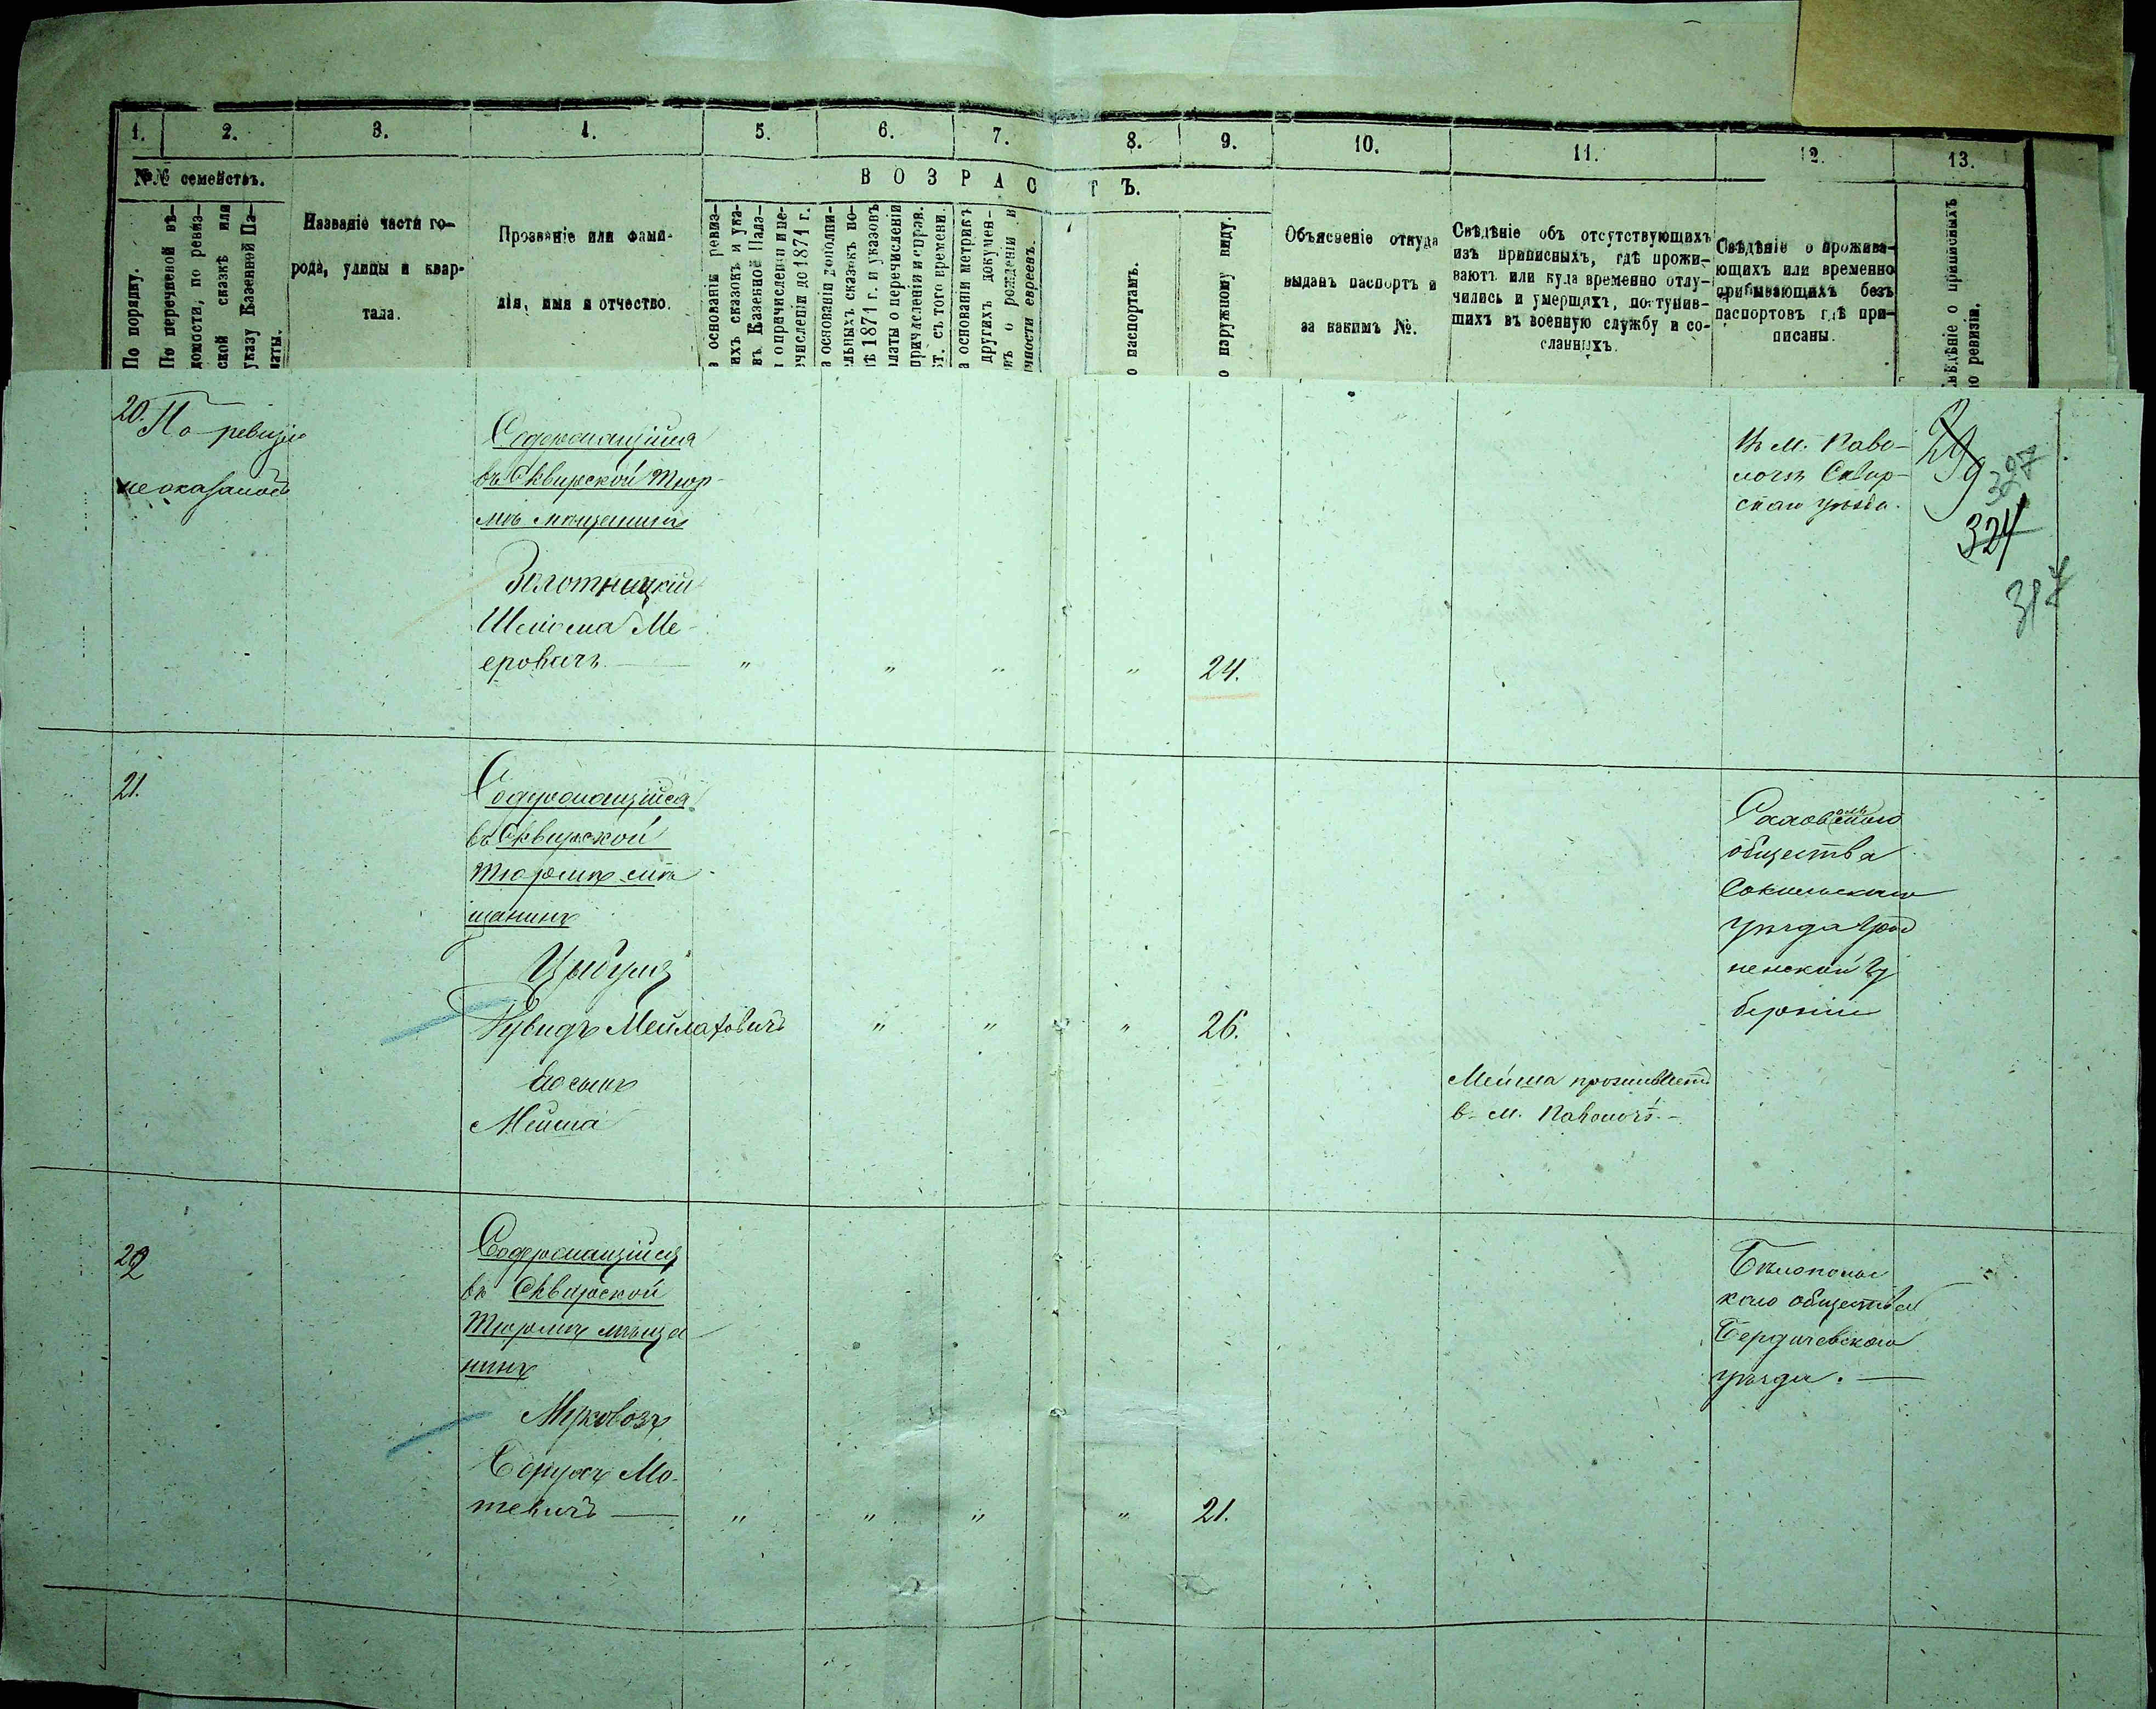 1. 2. 3. 4. 5. 6. 7. 8. 9. 10. 11. 12. 13.
№№ семействъ.
ВОЗРАСТЪ.
По порядку.
По перечневой вѣ-
домости, по ревиз-
ской сказкѣ или
указу Казенной Па-
латы.
Названіе части го-
рода, улицы и квар-
тала.
Прозваніе или фами-
лія, имя и отчество.
а основаніи ревиз-
ихъ сказокъ и ука-
въ Казенной Пала-
о причисленіи и пе-
ечисленіи до 1871 г.
а основаніи дополни-
ельныхъ сказокъ по-
ѣ 1871 г. и указовъ
латы о перечисленіи
причисленіи и справ.
ѣт. съ того времени.
а основаніи метрикъ
другихъ докумен-
въ о рожденіи и
чности евреевъ.
о паспортамъ.
о наружному виду.
Объясненіе откуда
выданъ паспортъ и
за какимъ №.
Свѣдѣніе объ отсутствующихъ
изъ приписныхъ, гдѣ прожи-
ваютъ или куда временно отлу-
чились и умершихъ, поступив-
шихъ въ военную службу и со-
сланныхъ.
Свѣдѣніе о прожива-
ющихъ или временно
пребывающихъ безъ
паспортовъ гдѣ при-
писаны.
вѣдѣніе о приписныхъ
по ревизіи.
20. По ревизіи
не оказалось
Содержащійся
въ Сквирской тюр-
мѣ мещанинъ
Золотницкій
Шліома Ме-
еровичъ — " " " " 24.
Въ м. Паво-
лочи Сквир-
скаго уѣзда.
299
327
324
317
21.
Содержащійся
въ Сквирской
тюрмѣ мѣ-
щанинъ
Цыбуля
Мейлаховичъ " " " 26.
Его сынъ
Мейша
Мейша проживаетъ
в. м. Паволочѣ. -
общества
Сокольскаго
уѣзда Грод
ненской Гу
берніи
22
Содержащійся
въ Сквирской
тюрмѣ мѣща
нинъ
Муковозъ
Борухъ Мо-
тевичъ — " " " " 21.
Бѣлополь
каго общества
Бердичевскаго
уѣзда. —